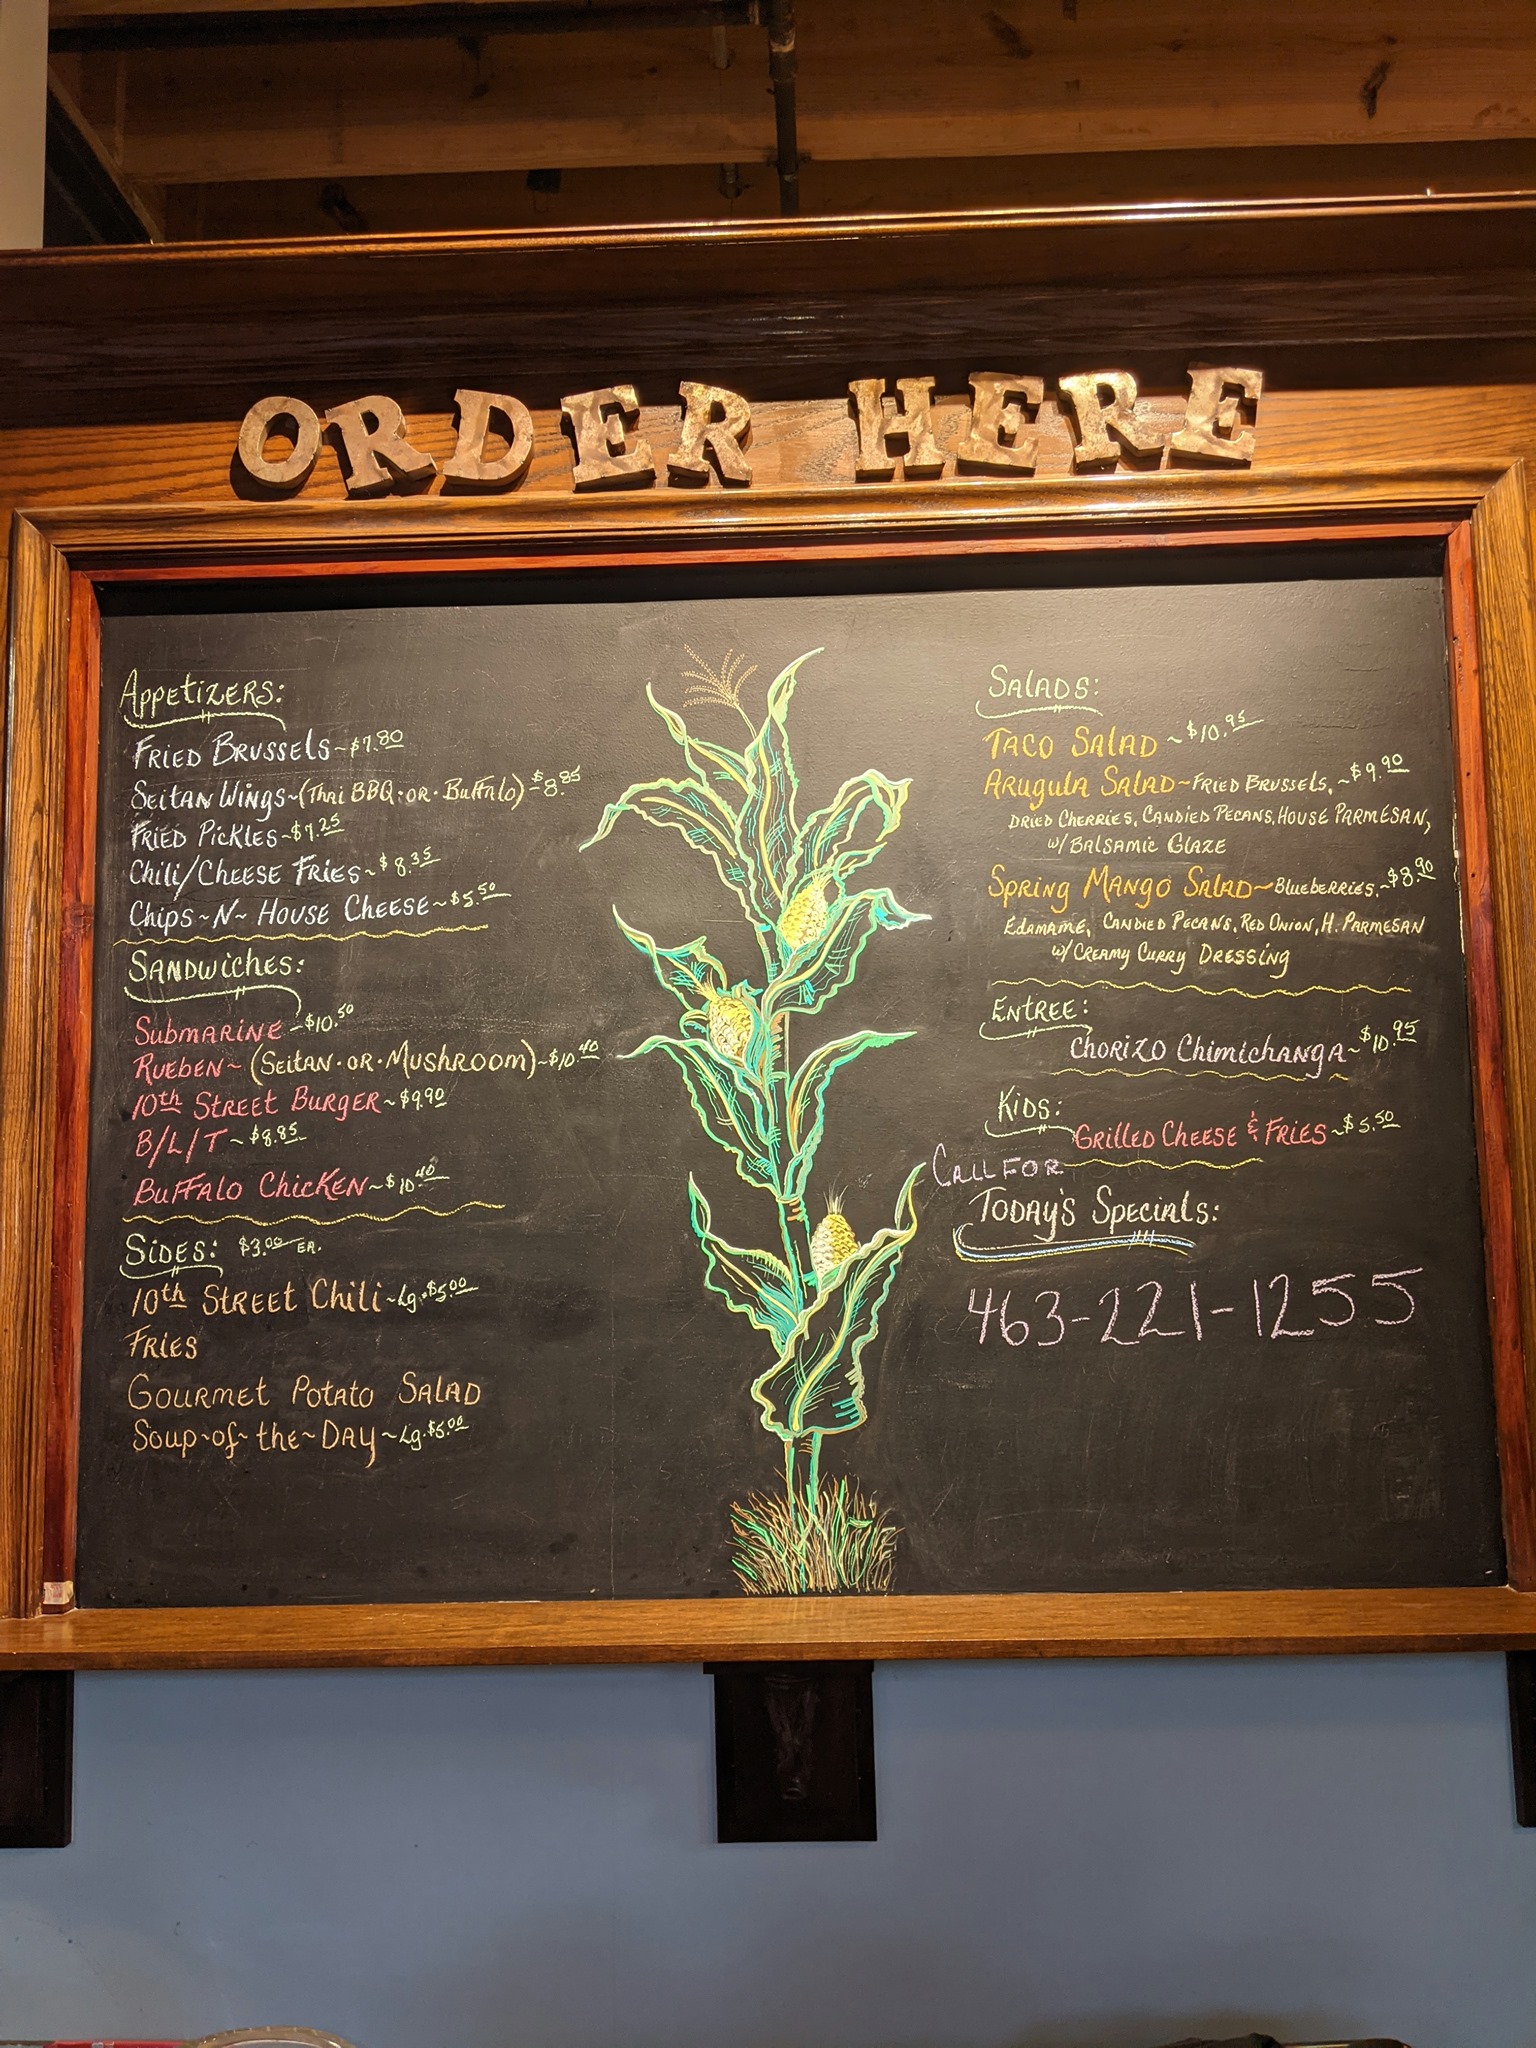 ORDER HERE
APPETIZERS:
FRIED BRUSSELS~$7.80
SEITAN WINGS~(THAI BBQ·OR·BUFFALO)~$8.85
FRIED PICKLES~$7.25
CHILI/CHEESE FRIES~$8.35
CHIPS~N~HOUSE CHEESE~$5.50
SANDWICHES:
SUBMARINE~$10.50
RUEBEN~(SEITAN·OR·MUSHROOM)~$10.40
10th STREET BURGER~$9.90
B/L/T~$8.85
BUFFALO CHICKEN~$10.40
SIDES: $3.00 EA.
10th STREET CHILI~Lg.$5.00
FRIES
GOURMET POTATO SALAD
SOUP~OF~THE~DAY~Lg.$5.00
SALADS:
TACO SALAD~$10.95
ARUGULA SALAD~FRIED BRUSSELS,~$9.90
DRIED CHERRIES, CANDIED PECANS, HOUSE PARMESAN,
W/ BALSAMIC GLAZE
SPRING MANGO SALAD~BLUEBERRIES,~$8.90
EDAMAME, CANDIED PECANS, RED ONION, H. PARMESAN
W/ CREAMY CURRY DRESSING
ENTREE:
CHORIZO CHIMICHANGA~$10.95
KIDS:
GRILLED CHEESE & FRIES~$5.50
CALL FOR
TODAY'S SPECIALS:
463-221-1255